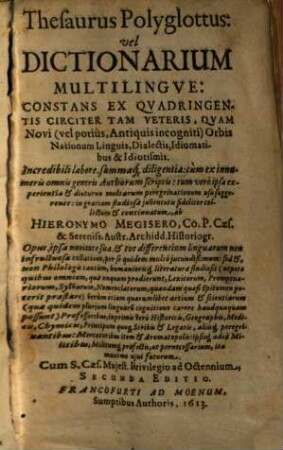 Thesaurus Polyglottus:
vel
DICTIONARIUM
MULTILINGVE:
CONSTANS EX QVADRINGEN-
TIS CIRCITER TAM VETERIS, QVAM
Novi (vel potiùs, Antiquis incogniti) Orbis
Nationum Linguis, Dialectis, Idiomati-
bus & Idiotismis.
Incredibili labore, summaq; diligentia: cùm ex innu-
meris omnis generis Authorum scriptis: tum verò ipsa ex-
perientia & diuturno multarum peregrinationum usu sugge-
rente: in gratiam studiosæ juventutis fideliter col-
lectum & concinnatum, ab
HIERONYMO MEGISERO, Co. P. Cæs.
& Sereniss. Austr. Archidd. Historiogr.
Opus, ipsa novitate sua & tot differentium linguarum non
infructuosa collatione, per se quidem multò jucundissimum: sed &
non Philologis tantùm,
quibus omnium, quæ unquam prodierunt, Lexicorum, Promptu-
ariorum, Sylvarum, Nomenclatorum, quandam quasi Epitomen
præstare) verùm etiam quarumlibet artium & scientiarum
(quæ quidem plurium linguarũ cognitione carere haudquaquam
possunt) Professoribus, inprimis verò Historicis, Geographis, Medi-
cis, Chymicis; Principum quoq; Scribis & Legatis, aliisq; peregri-
nantibus: Mercatoribus item & Aromatopolis ipsisq; adeò Mi-
litibus, Militumq; præfectis, ut pernecessarium, ita
maximo usui futurum.
Cum S. Cæs. Majest. Privilegio ad Octennium.
SECUNDA EDITIO.
FRANCOFURTI AD MOENUM,
Sumptibus Authoris, 1613.